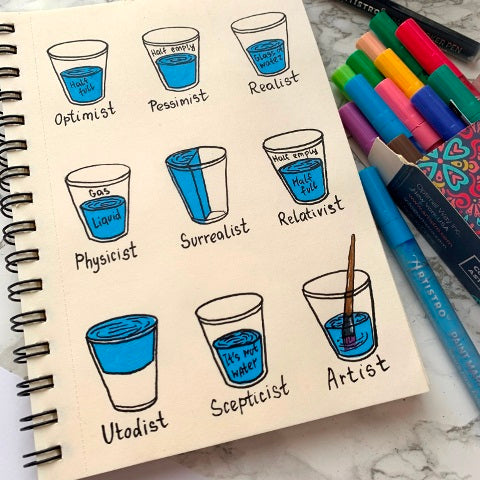 Half
full
Optimist
Half empty
Pessimist
Glass of
water
Realist
Gas
Liquid
Physicist
Surrealist
Half empty
Half
full
Relativist
Utodist
It's not
water
Scepticist
Artist
ARTISTRO
ARTISTRO
PAINT MA